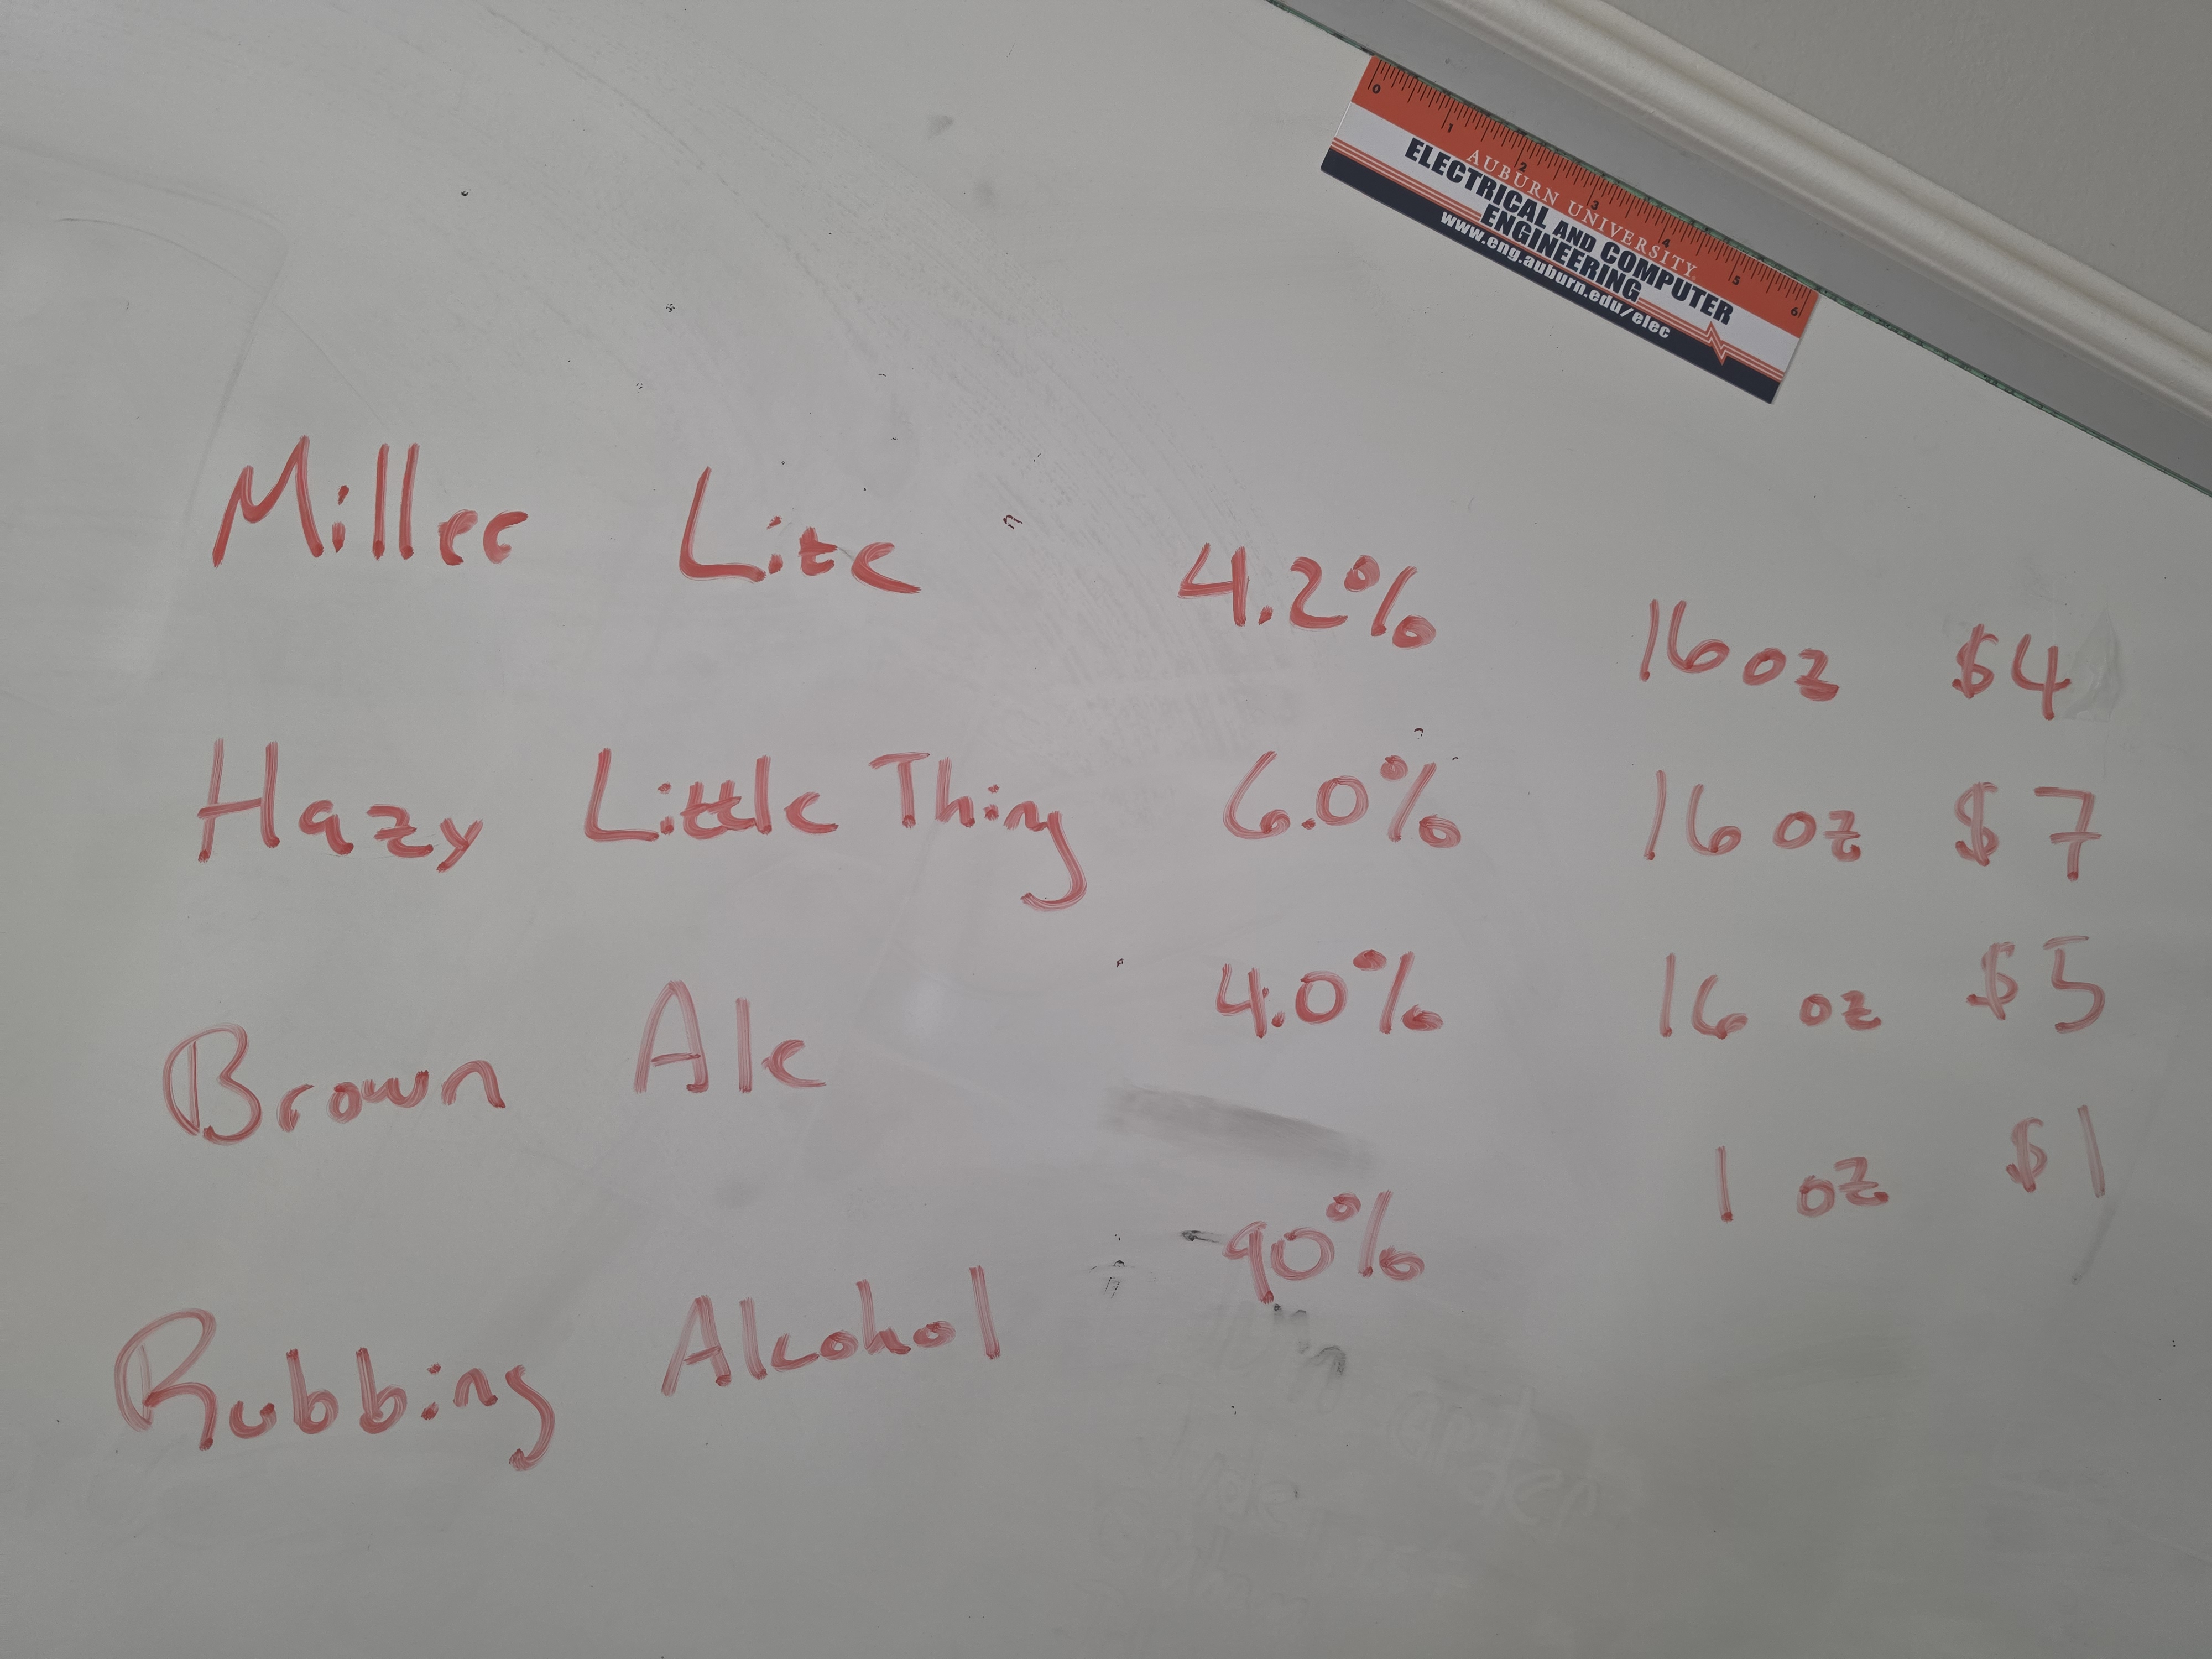 0 1 2 3 4 5 6
AUBURN UNIVERSITY
ELECTRICAL AND COMPUTER
ENGINEERING
www.eng.auburn.edu/elec
Miller Lite 4.2% 16 oz $4
Hazy Little Thing 6.0% 16 oz $7
Brown Ale 4.0% 16 oz $5
Rubbing Alcohol 90% 1 oz $1